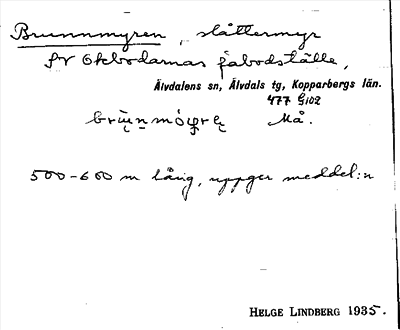 Brunnmyren, slåttermyr
sv Okbodarnas fäbodställe,
Älvdalens sn, Älvdals tg, Kopparbergs län.
477 G102
Må.
500-600 m lång, uppger meddel:n
HELGE LINDBERG 1935.